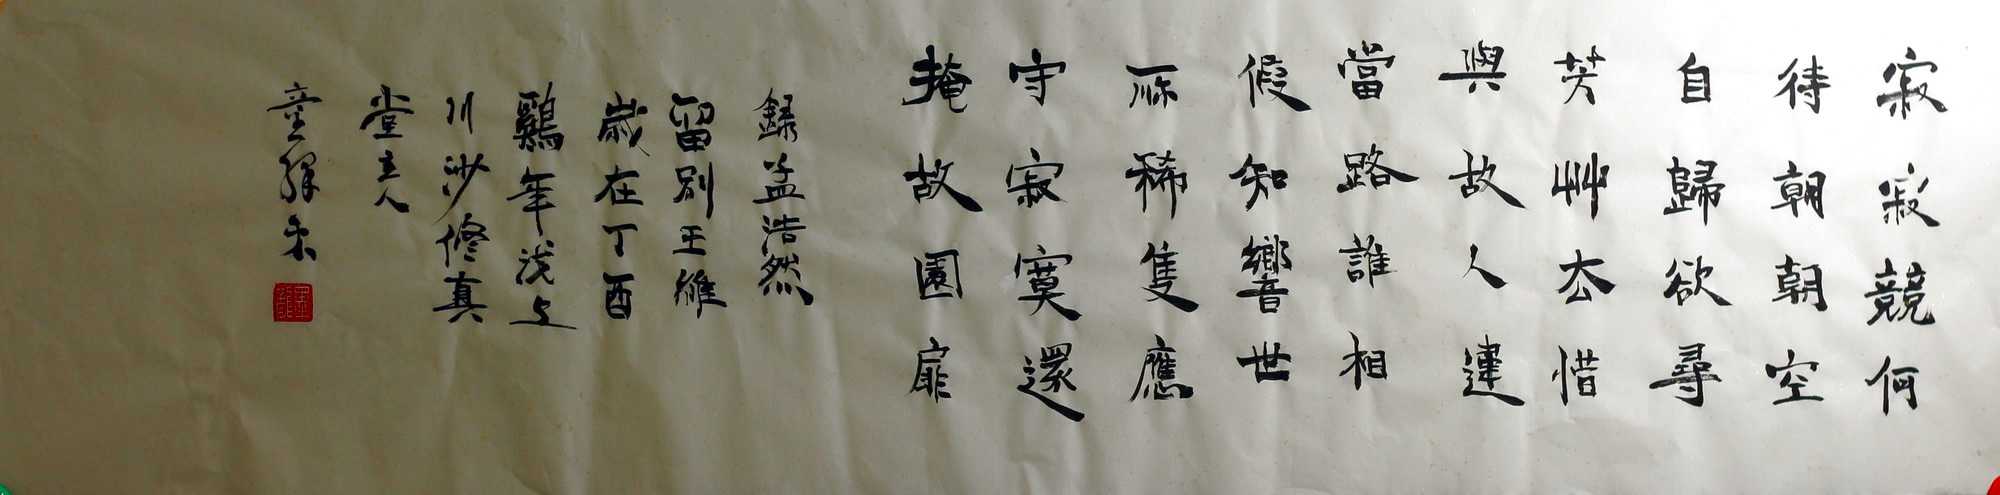 寂寂競何
待朝朝空
自歸欲尋
芳艸去惜
與故人違
當路誰相
假知響世
所稀隻應
守寂寞還
掩故園扉
錄孟浩然
留別王維
歲在丁酉
鷄年浅
川沙修真
堂主人
童